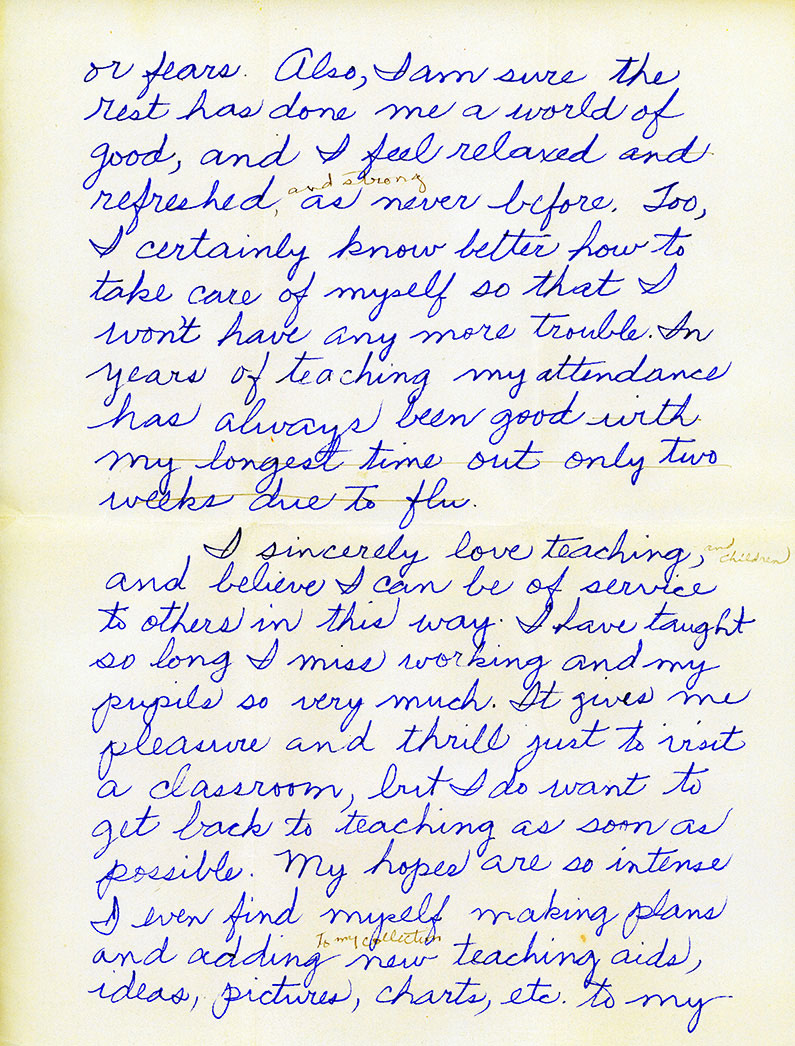 or fears. Also, I am sure the
rest has done me a world of
good, and I feel relaxed and
and strong
refreshed, as never before. Too,
I certainly know better how to
take care of myself so that I
won't have any more trouble. In
years of teaching my attendance
has always been good with
my longest time out only two
weeks due to flu.
I sincerely love teaching, and children
and believe I can be of service
to others in this way. I have taught
so long I miss working and my
pupils so very much. It gives me
pleasure and thrill just to visit
a classroom, but I do want to
get back to teaching as soon as
possible. My hopes are so intense
I even find myself making plans
To my collection
and adding new teaching aids,
ideas, pictures, charts, etc. to my